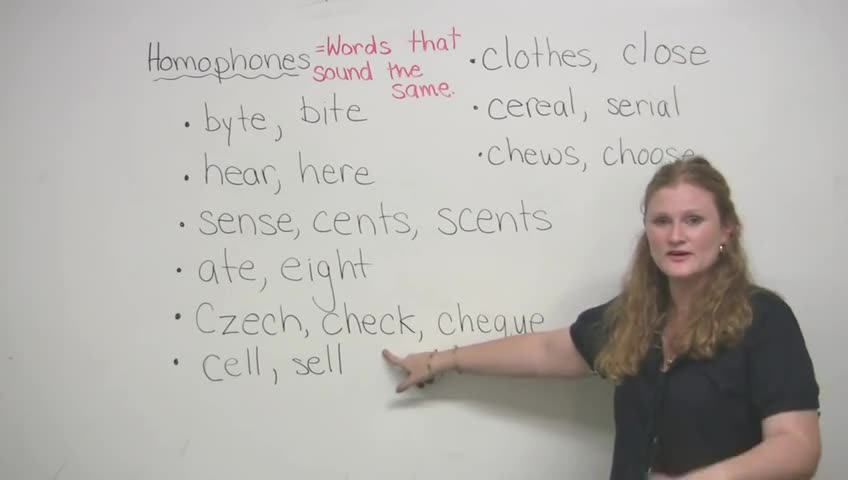 Homophones
=Words that
sound the
same.
• byte, bite
• hear, here
• sense, cents, scents
• ate, eight
• Czech, check, cheque
• cell, sell
• clothes, close
• cereal, serial
• chews, choose